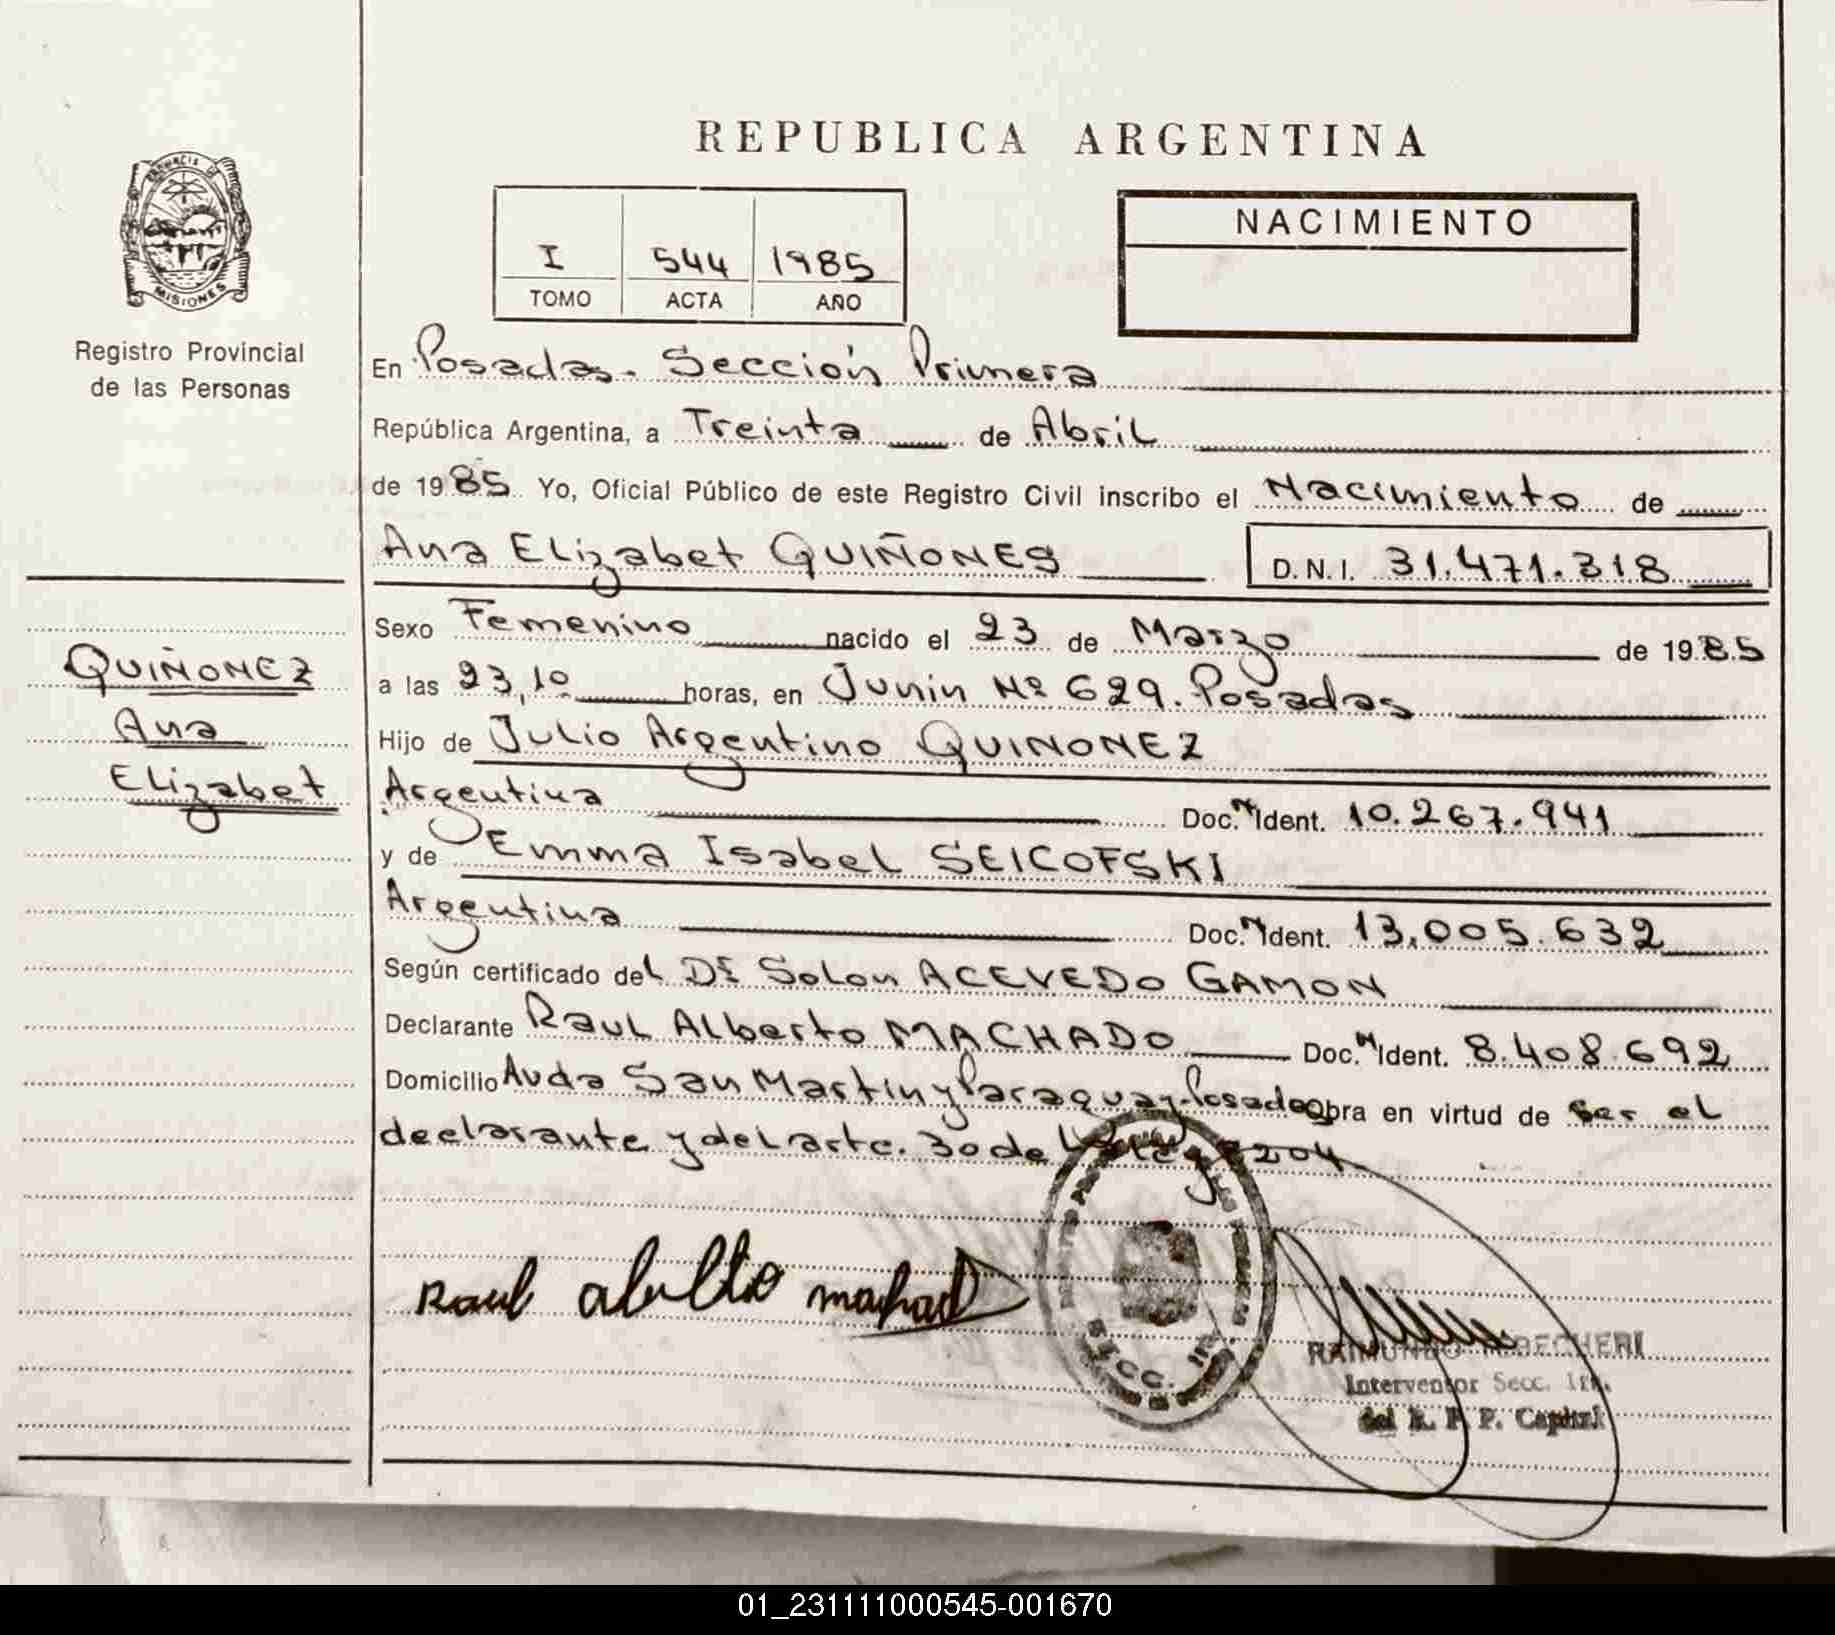 REPUBLICA ARGENTINA
PROVINCIA DE
MISIONES
Registro Provincial
de las Personas
I 544 1985
TOMO ACTA AÑO
NACIMIENTO
En Posadas. Sección Primera
República Argentina, a Treinta de Abril
de 1985 Yo, Oficial Público de este Registro Civil inscribo el Nacimiento de
Ana Elizabet QUIÑONES D.N.I. 31.471.318
Sexo Femenino nacido el 23 de Marzo de 1985
a las 23,10 horas, en Junin Nº 629. Posadas
Hijo de Julio Argentino QUINONEZ
Argentina Doc. N Ident. 10.267.941
y de Emma Isabel SEICOFSKI
Argentina Doc. N Ident. 13.005.632
Según certificado del Dr Solon ACEVEDO GAMON
Declarante Raul Alberto MACHADO Doc. N Ident. 8.408.692
Domicilio Avda San Martin y Paraguay-Posadas obra en virtud de ser el
declarante y del artc. 30 de la ley 8204
QUIÑONEZ
Ana
Elizabet
Raul alberto machado
SECC. 1ra.
RAIMUNDO BECHERI
Interventor Secc. 1ra.
del R. P. P. Capital
01_231111000545-001670